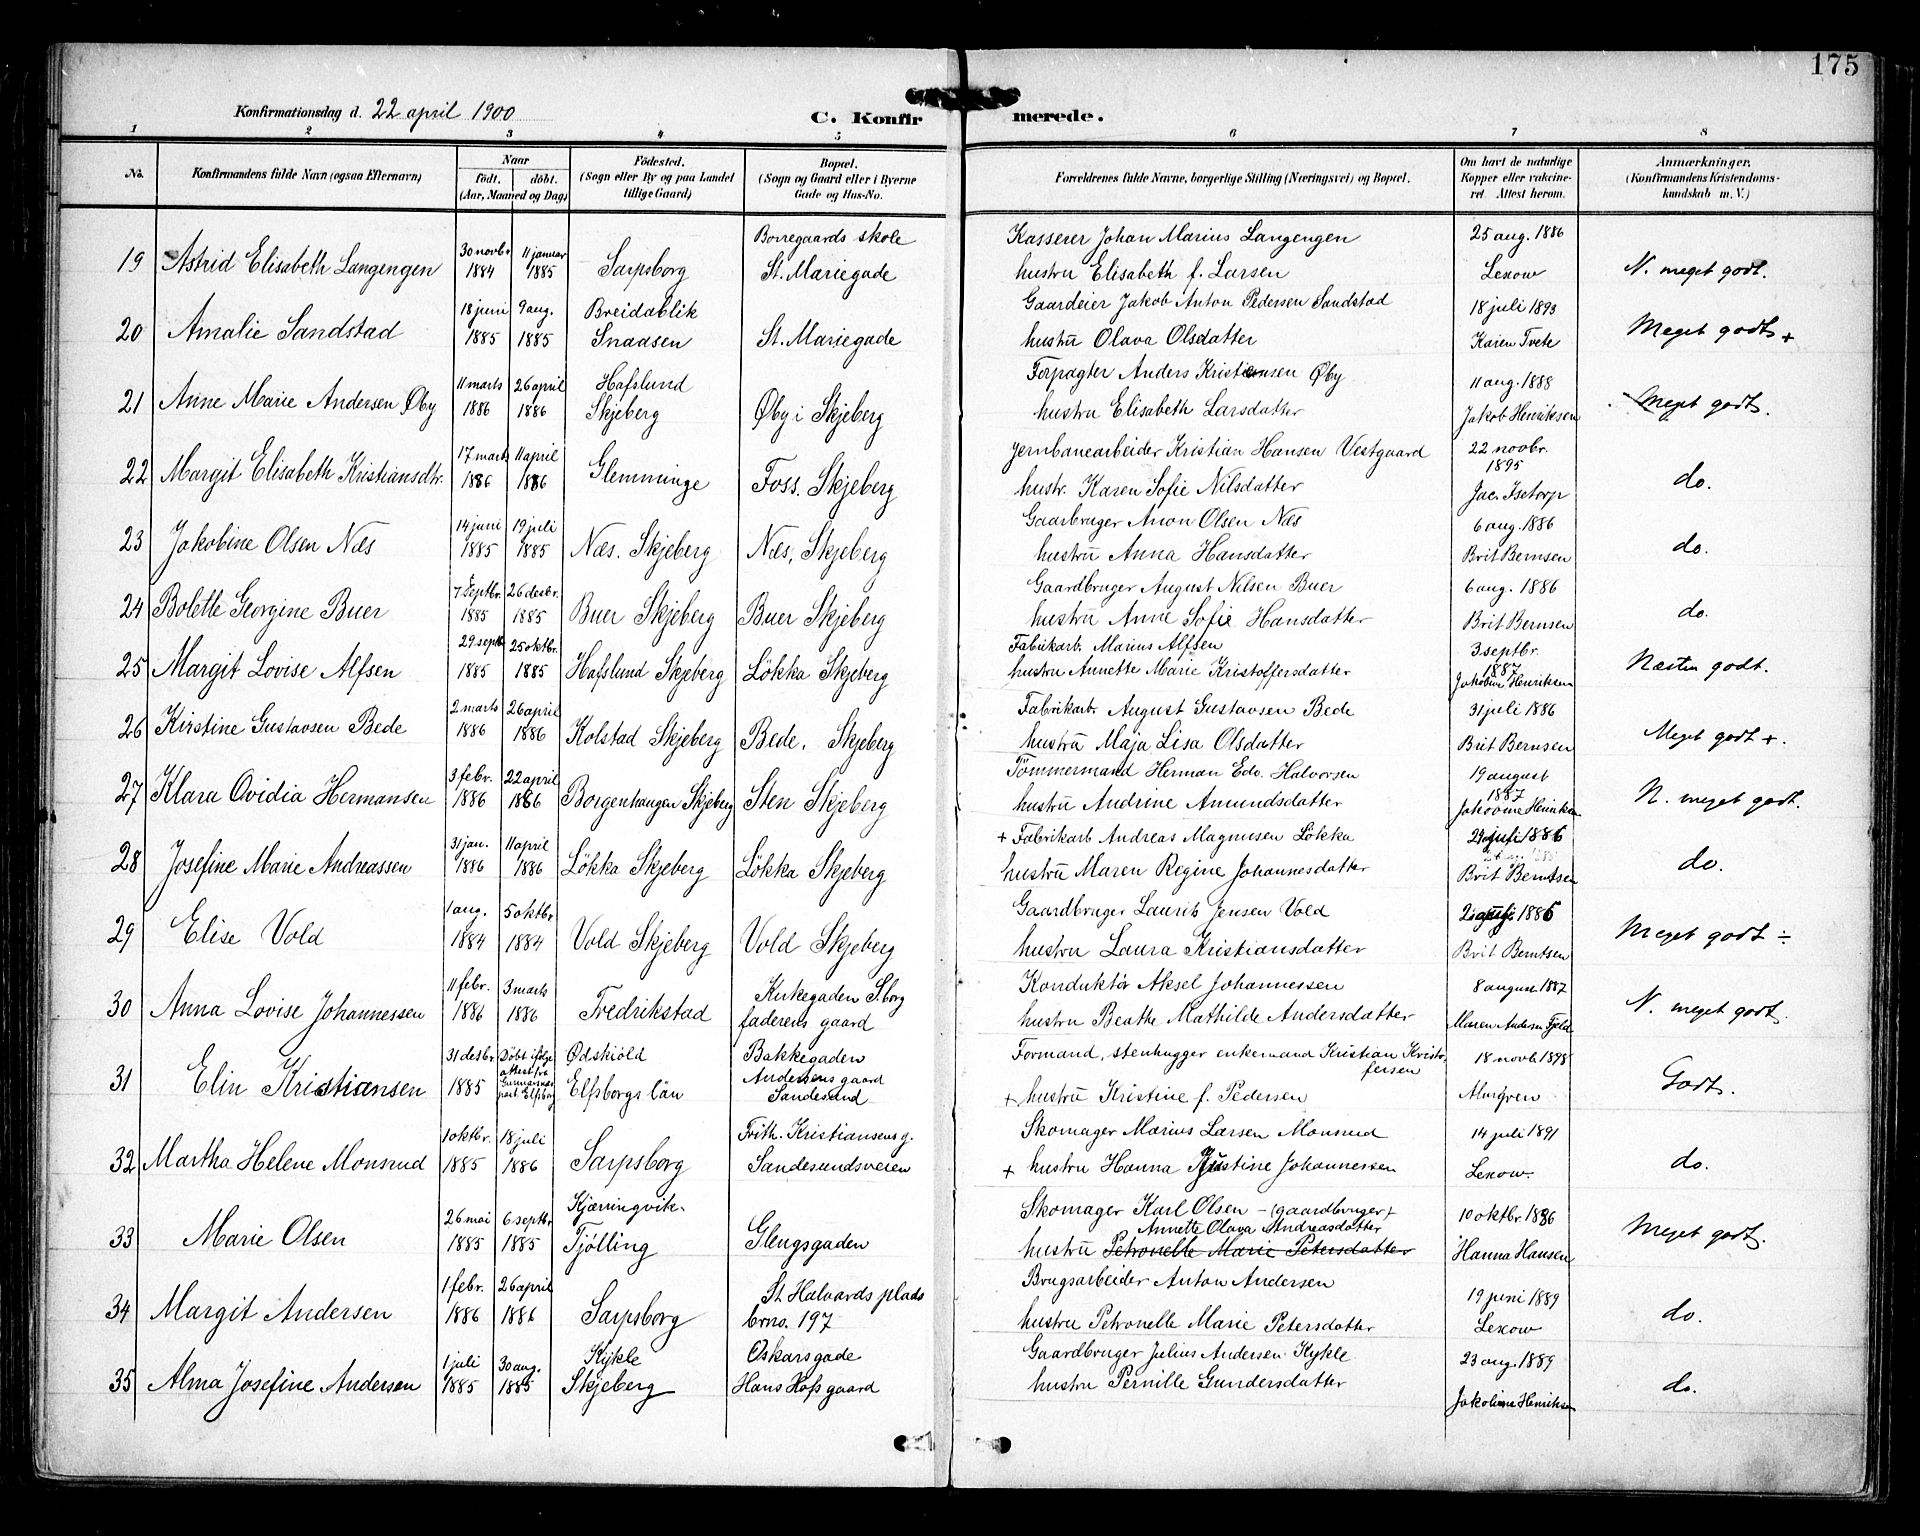 175
Konfirmationsdag d. 22 april 1900
C. Konfir merede.
1 2 3 4 5 6 7 8
No.
Konfirmandens fulde Navn (ogsaa Efternavn)
Naar
født. døbt.
(Aar, Maaned og Dag)
Födested.
(Sogn eller By og paa Landet
tillige Gaard)
Bopæl.
(Sogn og Gaard eller i Byerne
Gade og Hus-No.
Forældrenes fulde Navne, borgerlige Stilling (Næringsvei) og Bopæl.
Om havt de naturlige
Kopper eller vakcine-
ret. Attest herom.
Anmærkninger.
(Konfirmandens Kristendoms-
kundskab m. V.)
30 novbr 11 januar Borregaards skole Kasserer Johan Marius Langengen 25 aug. 1886
19 Astrid Elisabeth Langengen 1884 1885 Sarpsborg St. Mariegade hustru Elisabeth f. Larsen Lexow N. meget godt.
18 juni 9 aug. Breidablik Gaardeier Jakob Anton Pedersen Sandstad 18 juli 1893
20 Amalie Sandstad 1885 1885 Snaasen St. Mariegade hustru Olava Olsdatter Karen Tvete Meget godt +
11 marts 26 april Hafslund Forpagter Anders Kristiansen Øby 11 aug. 1888
21 Anne Marie Andersen Øby 1886 1886 Skjeberg Øby i Skjeberg hustru Elisabeth Larsdatter Jakob Henriksen Meget godt.
17 marts 11 april Jernbanearbeider Kristian Hansen Vestgaard 22 novbr. 1895
22 Margit Elisabeth Kristiansdtr. 1886 1886 Glemminge Foss. Skjeberg hustr. Karen Sofie Nilsdatter Jac. Isetorp do.
14 juni 19 juli Gaarbruger Anon Olsen Næs 6 aug. 1886
23 Jakobine Olsen Næs 1885 1885 Næs. Skjeberg Næs, Skjeberg hustru Anna Hansdatter Brit Bernsen do.
7 septbr. 26 desbr. Gaardbruger August Nilsen Buer 6 aug. 1886
24 Bolette Georgine Buer 1885 1885 Buer Skjeberg Buer Skjeberg hustru Anne Sofie Hansdatter Brit Bernsen do.
29 septb 25 oktbr. Fabrikarb. Marius Alfsen 3 septbr. 1887
25 Margit Lovise Alfsen 1885 1885 Hafslund Skjeberg Lökka Skjeberg hustru Annette Marie Kristoffersdatter Jakobine Henriksen Næsten godt.
2 marts 26 april Fabrikarb. August Gustavsen Bede 31 juli 1886
26 Kirstine Gustavsen Bede 1886 1886 Kolstad Skjeberg Bede, Skjeberg hustru Maja Lisa Olsdatter Brit Bernsen Meget godt +.
3 febr. 22 april Tömmermand Herman Edv. Halvorsen 19 august 1887
27 Klara Ovidia Hermansen 1886 1886 Borgenhaugen Skjeberg Sten Skjeberg hustru Andrine Amundsdatter N. meget godt.
31 jan. 11 april + Fabrikarb Andreas Magnusen Lökka 29 juli 1886
28 Josefine Marie Andreassen 1886 1886 Lökka Skjeberg Lökka Skjeberg hustru Maren Regine Johannesdatter Brit Berntsen do.
1 aug. 5 oktbr Gaardbruger Laurits Jensen Vold 1886
29 Elise Vold 1884 1884 Vold Skjeberg Vold Skjeberg hustru Laura Kristiansdatter Brit Berntsen Meget godt ÷
11 febr. 3 marts Kirkegaden S.borg Konduktør Aksel Johannessen 8 august 1887
30 Anna Lovise Johannessen 1886 1886 Fredrikstad faderens gaard hustru Beathe Mathilde Andersdatter Maren Andersen Fjeld N. meget godt.
31 desbr Döbt ifölge attest fra Ødskiöld Bakkegaden Formand, stenhugger enkemand Kristian Kristoffersen 18 novb. 1898
31 Elin Kristiansen 1885 Elfsborgs län Andersens gaard Sandesund + hustru Kristine f. Pedersen Almgren Godt.
1 oktbr. 18 juli Frith. Kristiansens g. Skomager Marius Larsen Monsrud 14 juli 1891
32 Martha Helene Monsrud 1885 1886 Sarpsborg Sandesundsveien + hustru Hanna Justine Johannessen Lexow. do.
26 mai 6 septbr Kjærringvik. Skomager Karl Olsen - (gaardbruger)
Annette Olava Andreasdatter 10 oktbr 1886
33 Marie Olsen 1885 1885 Tjølling Glengsgaden hustru Petronelle Marie Petersdatter Hanna Hansen Meget godt.
1 febr. 26 april St. Halvards plads Brugsarbeider Anton Andersen 19 juni 1889
34 Margit Andersen 1886 1886 Sarpsborg brno. 197 hustru Petronelle Marie Petersdatter Lexow do.
1 juli 30 aug. Kykle Oskarsgade Gaardbruger Julius Andersen Kykle 23 aug. 1889
35 Alma Josefine Andersen 1885 1885 Skjeberg Hans Hofs gaard hustru Pernille Gundersdatter Jakobine Henriksen do.